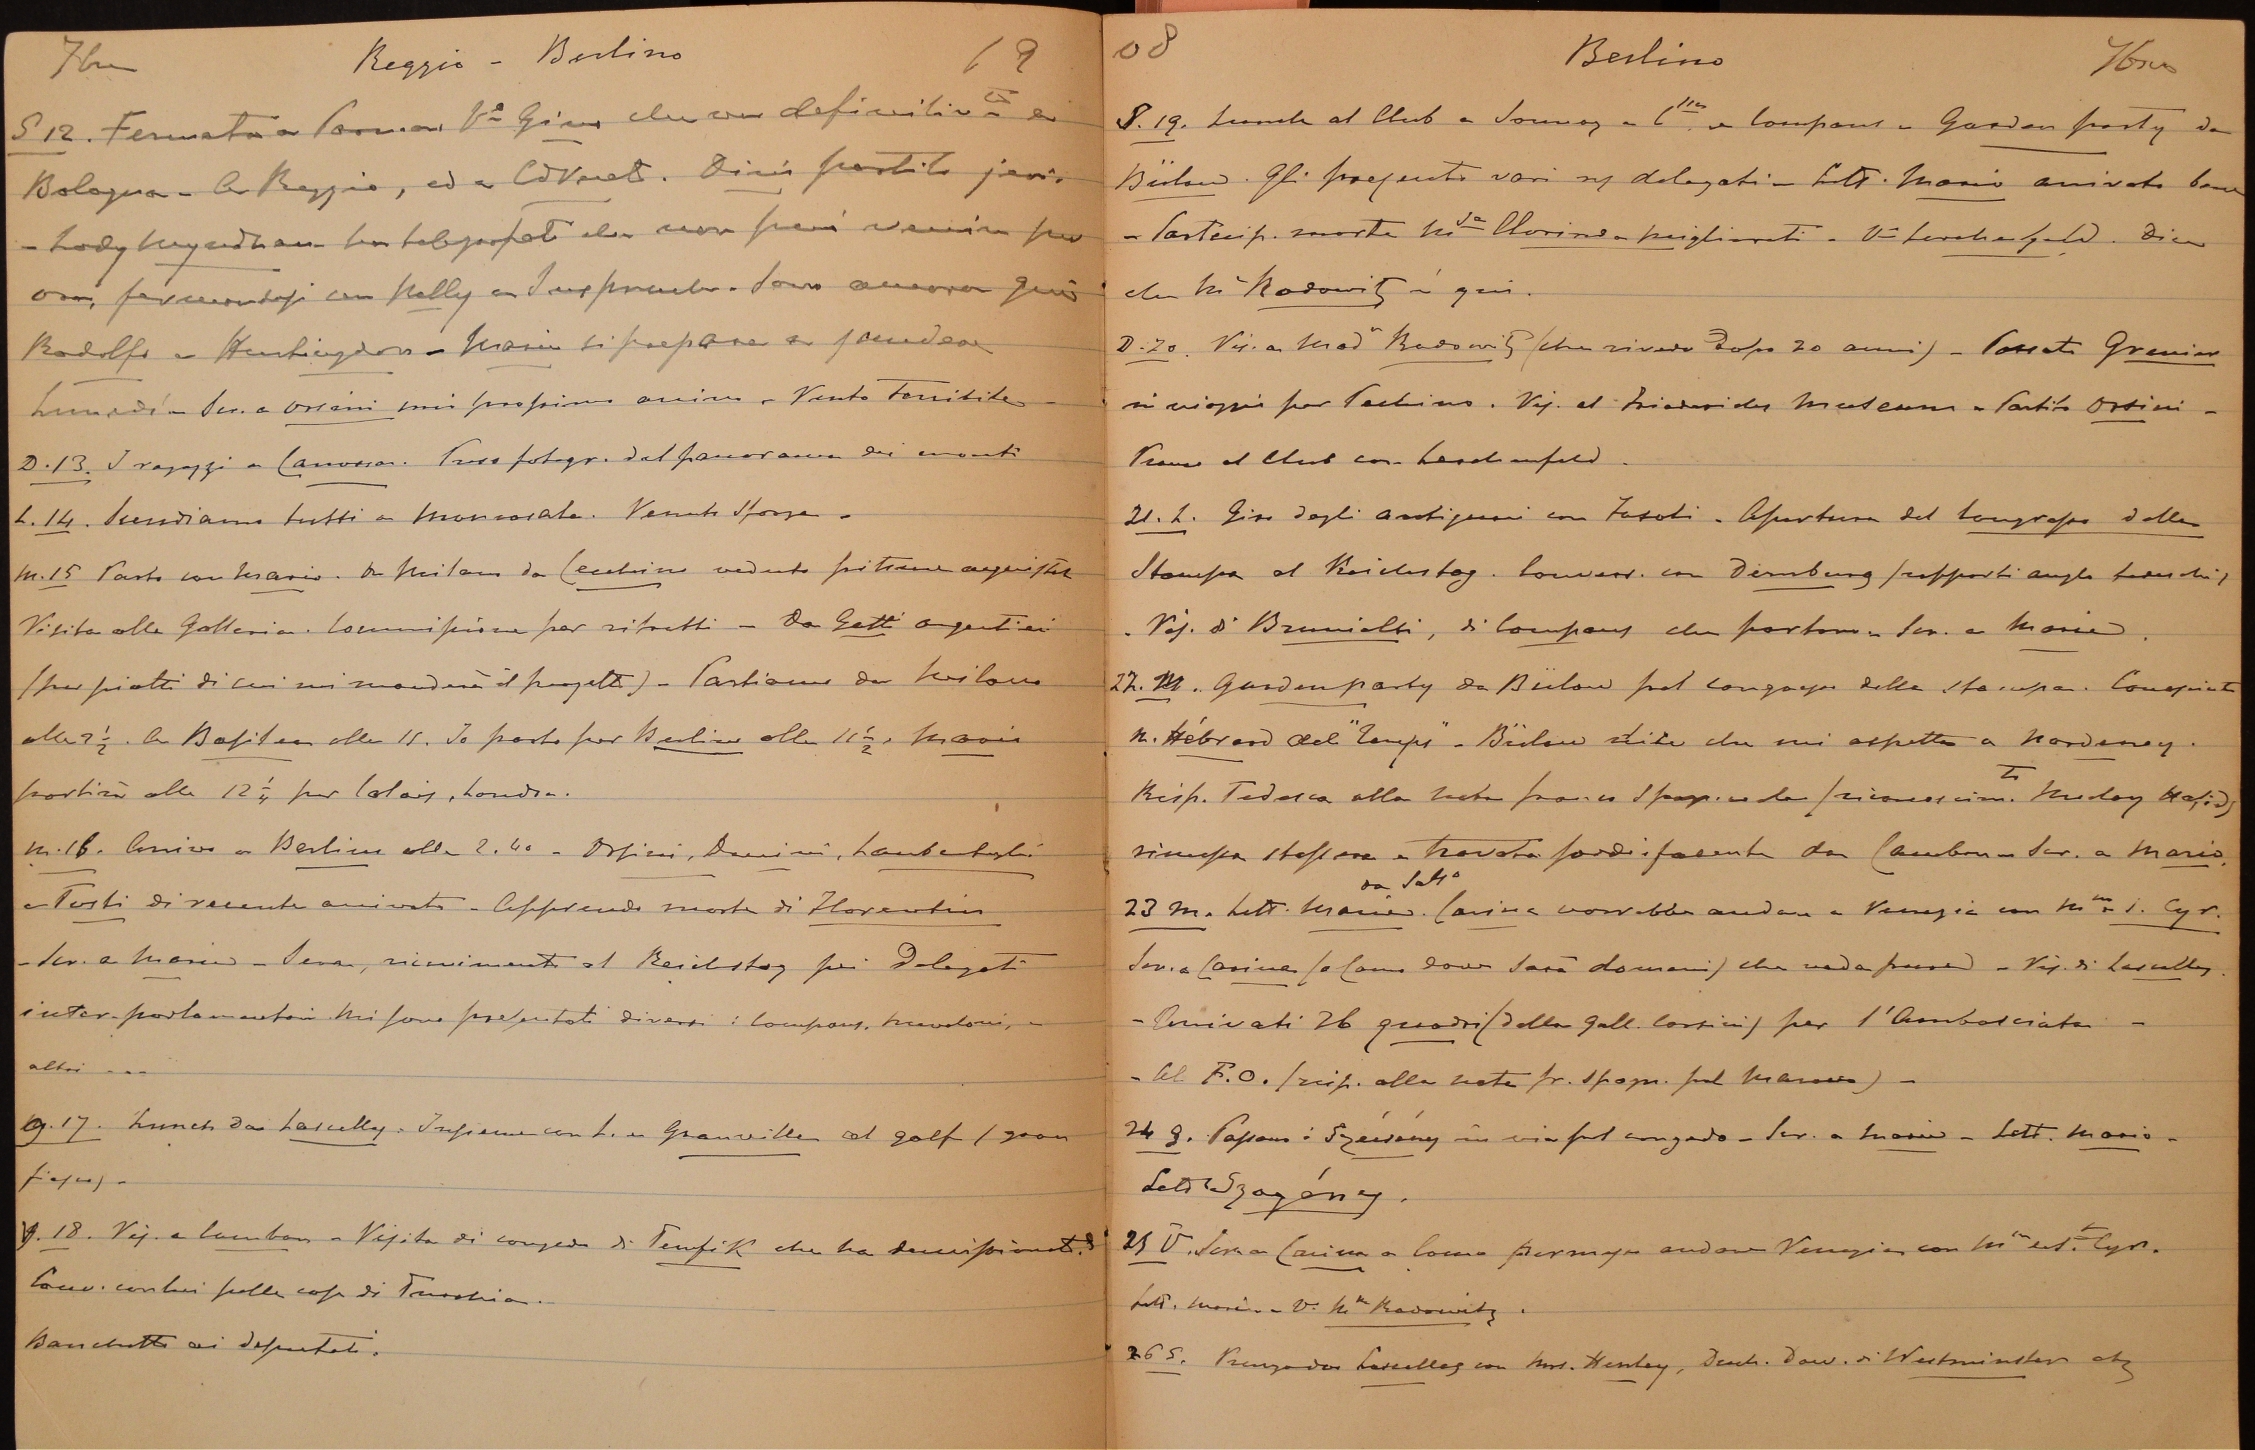 7bre Reggio - Berlino 19
S 12. Fermata a Parma Va Gina che va definitiva a
Bologna - A Reggio, ed a Cavriago. Dini partito jeri.
- Lady ha telegrafato che non può venire per
ora, fermandosi con Kelly a Innspruck. Sono ancora qui
Rodolfo e Huntingdon - Mario si prepara a prendere
Lunedì - Scr. a Orsini mio prossimo arrivo - Vento terribile -
D. 13. I ragazzi a Canossa. Preso fotogr. del panorama dei monti
L. 14. Scendiamo tutti a Moncasale. Venuto Sforza -
M. 15 Parto con Mario. A Milano da Cecchino veduto pitture
Visita alla Galleria. Commissione per ritratti - Da Gatti argentieri
(per piatti di cui mi manderà il progetto) - Partiamo da Milano
alle 2 1/2. A Basilea alle 11. Io parto per Berlino alle 11 1/2, Mario
partirà alle 12 1/4 per Calais, Londra.
M. 16. Arrivo a Berlino alle 2.40 - Orsini,
e Tosti di recente arrivato - Apprendo morte di Florentin
- Scr. a Mario - Sera, ricevimento al Reichstag pei Delegati
inter-parlamentari. Mi sono presentati diversi : Compans, e
altri ---
G. 17. Lunch da Lascelles. Insieme con L. e Granville al golf (gran
fiasco) -
V. 18. Vis. a Cambon - Visita di congedo di Tewfik che ha
Conv. con lui sulle cose di Turchia. -
Banchetto ai deputati.
08 Berlino 7bre
S. 19. Lunch al Club a Sonnaz e Compans - Garden party da
Bülow. Gli presento vari ns delegati - Lett. Mario arrivato bene
- Partecip. morte Clorinda Migliorati - Va Lerchenfeld. Dice
che Me Radowitz è qui.
D. 20. Vis. a Made Radowitz (che rivedo dopo 20 anni) - Passato Grenier
in viaggio per Pechino. Vis. al Friedrichs Museum - Partito Orsini -
Pranzo al Club con Lerchenfeld.
21. L. Giro dagli antiquari con Tosti - Apertura del Congresso della
Stampa al Reichstag. Convers. con Dernburg (rapporti anglo tedeschi)
- Vis. di Brunialti, di Compans che partono - Scr. a Mario.
22. M. Garden party da Bülow pel congresso della stampa. Conosciuto
M. Hébrard del "Temps" - Bülow dice che mi aspetta a Norderney.
Risp. Tedesca alla nota franco spagnuola (riconoscim.to Muley Hafid)
rimessa stassera e trovata soddisfacente da Cambon - Scr. a Mario.
23 M. Lett. Mario da Salso. Carina vorrebbe andare a Venezia con Mme S. Cyr.
Scr. a Carina (a Como dove sarà domani) che vada pure - Vis. di Lascelles.
- Arrivati 26 quadri (della Gall. Corsini) per l'Ambasciata -
- Al F.O. (risp. alla nota fr. spagn. sul Marocco) -
24 G. Passano i Szécsény in via pel congedo - Scr. a Mario - Lett. Mario -
Lett. a Szögény.
25 V. Scr. a Carina a Como permesso andare Venezia con Mme de St. Cyr.
Lett. Mario - V. Me Radowitz.
26 S. Pranzo da Lascelles con Mrs. Henley, Duch. Dow. di Westminster etc